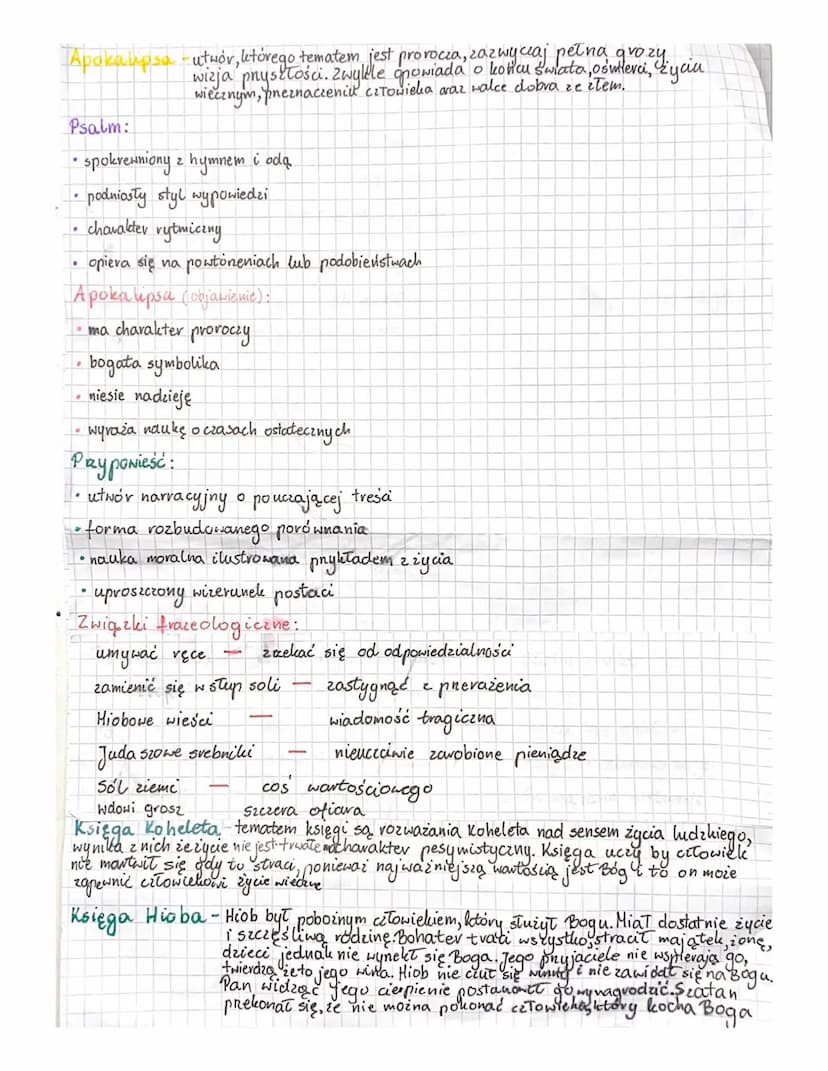 Apokalipsa - utwór, którego tematem jest prorocza, zazwyczaj pełna grozy
wizja przyszłości. Zwykle opowiada o końcu świata, o śmierci, życiu
wiecznym, przeznaczeniu człowieka oraz walce dobra ze złem.
Psalm:
• spokrewniony z hymnem i odą
• podniosły styl wypowiedzi
• charakter rytmiczny
• opiera się na powtórzeniach lub podobieństwach
Apokalipsa (objawienie):
• ma charakter proroczy
• bogata symbolika
• niesie nadzieję
• wyraża naukę o czasach ostatecznych
Przypowieść:
• utwór narracyjny o pouczającej treści
• forma rozbudowanego porównania
• nauka moralna ilustrowana przykładem z życia
• uproszczony wizerunek postaci
Związki frazeologiczne:
umywać ręce — zrzekać się od odpowiedzialności
zamienić się w słup soli — zastygnąć z przerażenia
Hiobowe wieści — wiadomość tragiczna
Judaszowe srebniki — nieuczciwie zarobione pieniądze
Sól ziemi — coś wartościowego
Wdowi grosz szczera ofiara
Księga Koheleta - tematem księgi są rozważania Koheleta nad sensem życia ludzkiego,
wynika z nich że życie nie jest trwałe charakter pesymistyczny. Księga uczy by człowiek
nie martwił się gdy to straci, ponieważ najważniejszą wartością jest Bóg i to on może
zapewnić człowiekowi życie wieczne
Księga Hioba - Hiob był pobożnym człowiekiem, który służył Bogu. Miał dostatnie życie
i szczęśliwą rodzinę. Bohater traci wszystko, stracił majątek, żonę,
dzieci jednak nie wyrzekł się Boga. Jego przyjaciele nie wspierają go,
twierdzą, że to jego wina. Hiob nie czuł się winny i nie zawiódł się na Bogu.
Pan widząc jego cierpienie postanowił go wynagrodzić. Szatan
przekonał się, że nie można pokonać człowieka, który kocha Boga